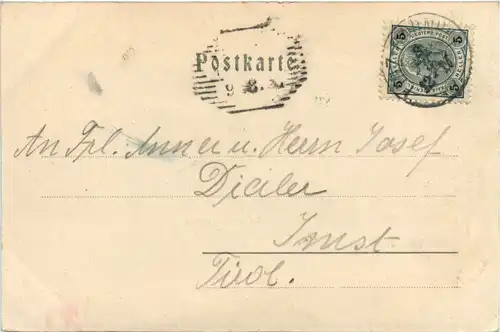 Postkarte
5 5
5 5
An Frl. Anner u. Herrn Josef
Dialer
Imst
Tirol.